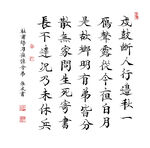 戍鼓斷人行邊秋一
鴈聲露從今夜白月
是故鄉明有弟皆分
散無家問死生寄書
長不達況乃未休兵
杜甫詩月夜憶舍弟